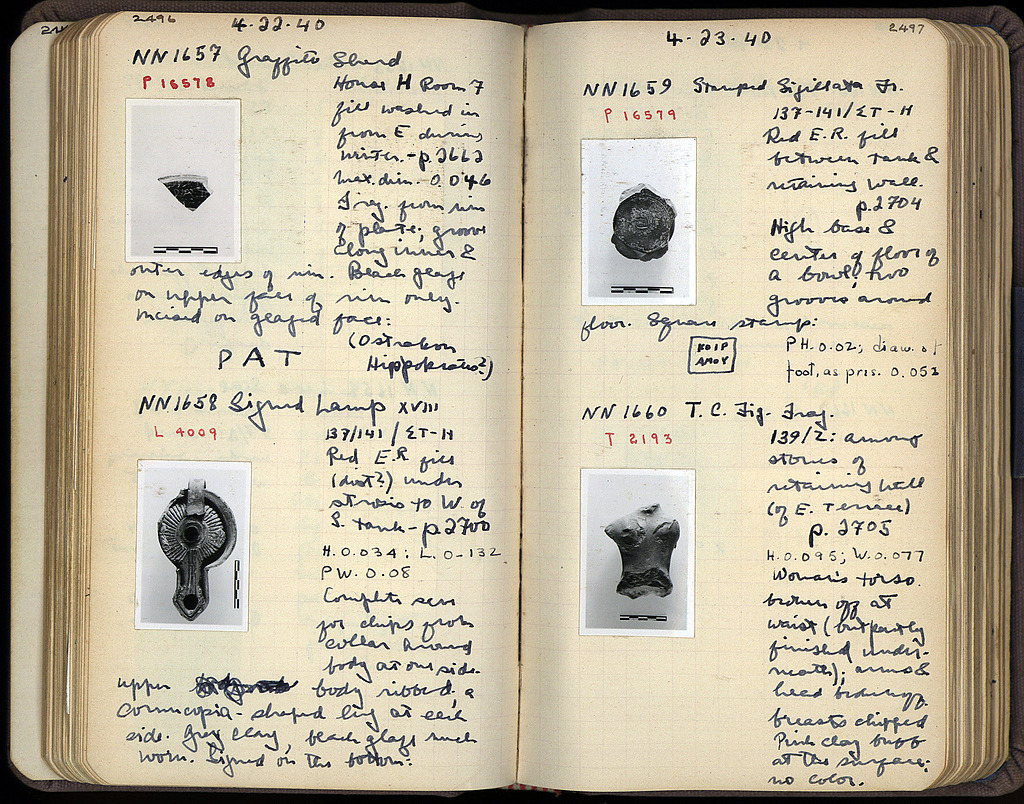 2496
4-22-40
NN1657 Graffito Sherd
P 16578
House H Room 7
fill washed in
from E during
winter. - p. 2662
max. dim. 0.046
Frag. from rim
of plate; groove
along inner &
outer edges of rim. Black glaze
on upper face of rim only.
Incised on glazed face:
(Ostrakon
PAT
Hippokrates?)
NN1658 Signed Lamp XVIII
L 4009
137/141 / ΣT-H
Red E.R. fill
(dist?) under
strosis to W. of
S. tank - p. 2700
H. 0.034; L. 0.132
P W. 0.08
Complete save
for chips from
collar around
body at one side.
Upper body ribbed; a
cornucopia-shaped lug at each
side. Grey clay, black glaze much
worn. Signed on the bottom:
2497
4-23-40
NN1659 Stamped Sigillata Fr.
P 16579
137-141/ΣT-H
Red E.R. fill
between tank &
retaining wall.
p. 2704
High base &
center of floor of
a bowl; two
grooves around
floor. Square stamp:
ΚΟΙΡ
ΑΜΟΥ
PH. 0.02; diam. of
foot, as pres. 0.052
NN1660 T.C. Fig. Frag.
T 2193
139/Σ: among
stones of
retaining wall
(of E. Terrace)
p. 2705
H. 0.095; W. 0.077
Woman's torso.
broken off at
waist (but partly
finished under-
neath); arms &
head broken off.
breasts chipped
Pink clay buff
at the surface;
no color.